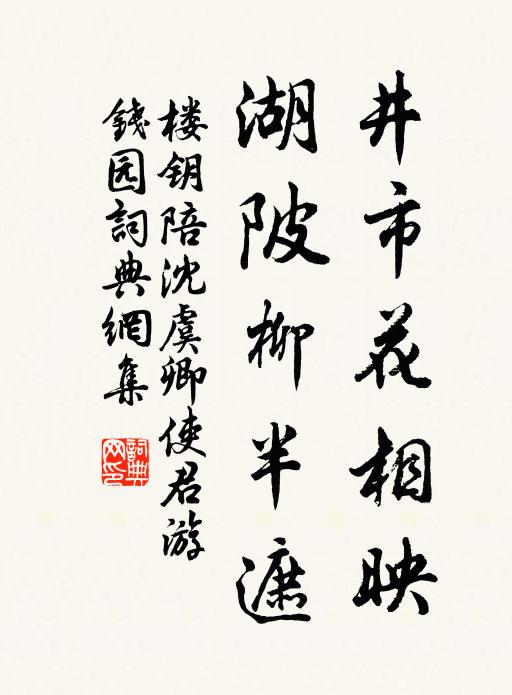 井市花相映
湖陂柳半遮
楼钥陪沈虞卿使君游
錢园詞典網集
詞典
网印